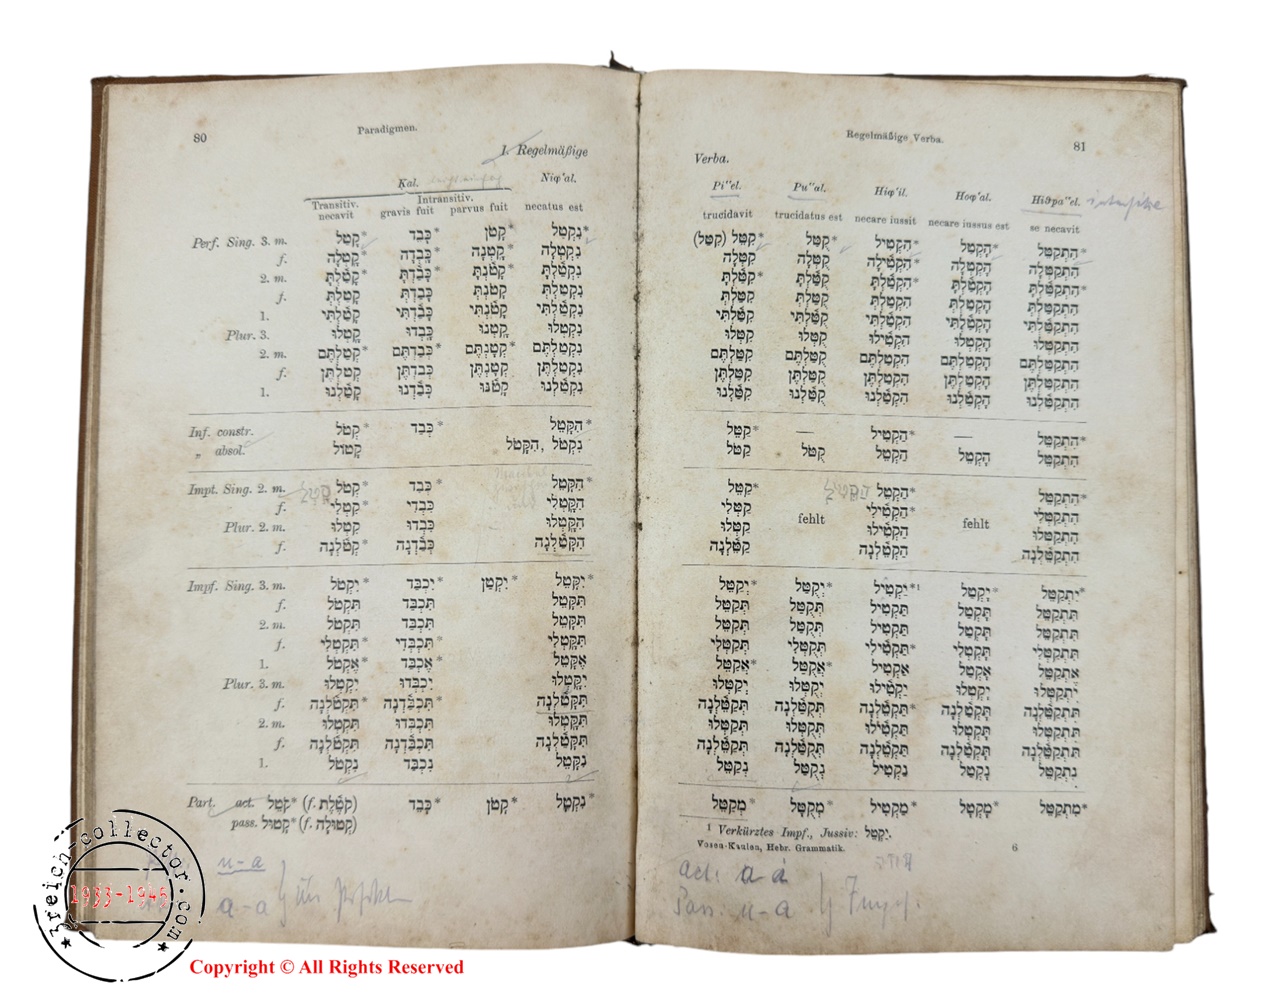 80
Paradigmen.
I. Regelmäßige
Kal.
Niφ‘al.
Transitiv.
Intransitiv.
necavit
gravis fuit
parvus fuit
necatus est
Perf. Sing. 3. m. *קָטַל *כָּבֵד *קָטֹן *נִקְטַל
f. *קָֽטְלָה *כָּֽבְדָה *קָֽטְנָה נִקְטְלָה
2. m. *קָטַ֫לְתָּ *כָּבַ֫דְתָּ *קָטֹ֫נְתָּ נִקְטַ֫לְתָּ
f. קָטַלְתְּ כָּבַדְתְּ קָטֹנְתְּ נִקְטַלְתְּ
1. קָטַ֫לְתִּי כָּבַ֫דְתִּי קָטֹ֫נְתִּי נִקְטַ֫לְתִּי
Plur. 3. קָֽטְלוּ כָּֽבְדוּ קָֽטְנוּ נִקְטְלוּ
2. m. *קְטַלְתֶּם *כְּבַדְתֶּם *קְטָנְתֶּם נִקְטַלְתֶּם
f. קְטַלְתֶּן כְּבַדְתֶּן קְטָנְתֶּן נִקְטַלְתֶּן
1. קָטַ֫לְנוּ כָּבַ֫דְנוּ קָטֹ֫נּוּ נִקְטַ֫לְנוּ
Inf. constr. *קְטֹל *כְּבַד *הִקָּטֵל
„ absol. קָטוֹל נִקְטֹל, הִקָּטֹל
Impt. Sing. 2. m. *קְטֹל *כְּבַד *הִקָּטֵל
f. *קִטְלִי כִּבְדִי הִקָּֽטְלִי
Plur. 2. m. קִטְלוּ כִּבְדוּ הִקָּֽטְלוּ
f. *קְטֹ֫לְנָה כְּבַ֫דְנָה הִקָּטַ֫לְנָה
Impf. Sing. 3. m. *יִקְטֹל *יִכְבַּד *יִקְטַן *יִקָּטֵל
f. תִּקְטֹל תִּכְבַּד תִּקָּטֵל
2. m. תִּקְטֹל תִּכְבַּד תִּקָּטֵל
f. *תִּקְטְלִי *תִּכְבְּדִי תִּקָּֽטְלִי
1. *אֶקְטֹל *אֶכְבַּד אֶקָּטֵל
Plur. 3. m. יִקְטְלוּ יִכְבְּדוּ יִקָּֽטְלוּ
f. *תִּקְטֹ֫לְנָה *תִּכְבַּ֫דְנָה תִּקָּטַ֫לְנָה
2. m. תִּקְטְלוּ תִּכְבְּדוּ תִּקָּֽטְלוּ
f. תִּקְטֹ֫לְנָה תִּכְבַּ֫דְנָה תִּקָּטַ֫לְנָה
1. נִקְטֹל נִכְבַּד נִקָּטֵל
Part. act. *קֹטֵל (f. קֹטֶ֫לֶת) *כָּבֵד *קָטֹן *נִקְטָל
pass. *קָטוּל (f. קְטוּלָה)
u-a
a-a
Regelmäßige Verba.
81
Verba.
Pi‘‘el.
Pu‘‘al.
Hiφ‘il.
Hoφ‘al.
Hiϑpa‘‘el.
trucidavit
trucidatus est
necare iussit
necare iussus est
se necavit
*קִטֵּל (קִטַּל) *קֻטַּל *הִקְטִיל *הָקְטַל *הִתְקַטֵּל
קִטְּלָה קֻטְּלָה *הִקְטִ֫ילָה הָקְטְלָה הִתְקַטְּלָה
*קִטַּ֫לְתָּ קֻטַּ֫לְתָּ *הִקְטַ֫לְתָּ הָקְטַ֫לְתָּ *הִתְקַטַּ֫לְתָּ
קִטַּלְתְּ קֻטַּלְתְּ הִקְטַלְתְּ הָקְטַלְתְּ הִתְקַטַּלְתְּ
קִטַּ֫לְתִּי קֻטַּ֫לְתִּי הִקְטַ֫לְתִּי הָקְטַ֫לְתִּי הִתְקַטַּ֫לְתִּי
קִטְּלוּ קֻטְּלוּ הִקְטִ֫ילוּ הָקְטְלוּ הִתְקַטְּלוּ
קִטַּלְתֶּם קֻטַּלְתֶּם הִקְטַלְתֶּם הָקְטַלְתֶּם הִתְקַטַּלְתֶּם
קִטַּלְתֶּן קֻטַּלְתֶּן הִקְטַלְתֶּן הָקְטַלְתֶּן הִתְקַטַּלְתֶּן
קִטַּ֫לְנוּ קֻטַּ֫לְנוּ הִקְטַ֫לְנוּ הָקְטַ֫לְנוּ הִתְקַטַּ֫לְנוּ
*קַטֵּל — *הַקְטִיל — *הִתְקַטֵּל
קַטֹּל קֻטֹּל הַקְטֵל הָקְטֵל הִתְקַטֵּל
*קַטֵּל *הַקְטֵל *הִתְקַטֵּל
קַטְּלִי fehlt *הַקְטִ֫ילִי fehlt הִתְקַטְּלִי
קַטְּלוּ הַקְטִ֫ילוּ הִתְקַטְּלוּ
קַטֵּ֫לְנָה הַקְטֵ֫לְנָה הִתְקַטֵּ֫לְנָה
*יְקַטֵּל *יְקֻטַּל ¹*יַקְטִיל *יָקְטַל *יִתְקַטֵּל
תְּקַטֵּל תְּקֻטַּל תַּקְטִיל תָּקְטַל תִּתְקַטֵּל
תְּקַטֵּל תְּקֻטַּל תַּקְטִיל תָּקְטַל תִּתְקַטֵּל
תְּקַטְּלִי תְּקֻטְּלִי *תַּקְטִ֫ילִי תָּקְטְלִי תִּתְקַטְּלִי
*אֲקַטֵּל *אֲקֻטַּל אַקְטִיל אָקְטַל אֶתְקַטֵּל
יְקַטְּלוּ יְקֻטְּלוּ יַקְטִ֫ילוּ יָקְטְלוּ יִתְקַטְּלוּ
תְּקַטֵּ֫לְנָה תְּקֻטַּ֫לְנָה *תַּקְטֵ֫לְנָה תָּקְטַ֫לְנָה תִּתְקַטֵּ֫לְנָה
תְּקַטְּלוּ תְּקֻטְּלוּ תַּקְטִ֫ילוּ תָּקְטְלוּ תִּתְקַטְּלוּ
תְּקַטֵּ֫לְנָה תְּקֻטַּ֫לְנָה תַּקְטֵ֫לְנָה תָּקְטַ֫לְנָה תִּתְקַטֵּ֫לְנָה
נְקַטֵּל נְקֻטַּל נַקְטִיל נָקְטַל נִתְקַטֵּל
*מְקַטֵּל *מְקֻטָּל *מַקְטִיל *מָקְטָל *מִתְקַטֵּל
¹ Verkürztes Impf., Jussiv: יַקְטֵל.
Vosen-Kaulen, Hebr. Grammatik. 6
act: a-a
Pass: u-a
3reich-collector.com
1933-1945
Copyright © All Rights Reserved